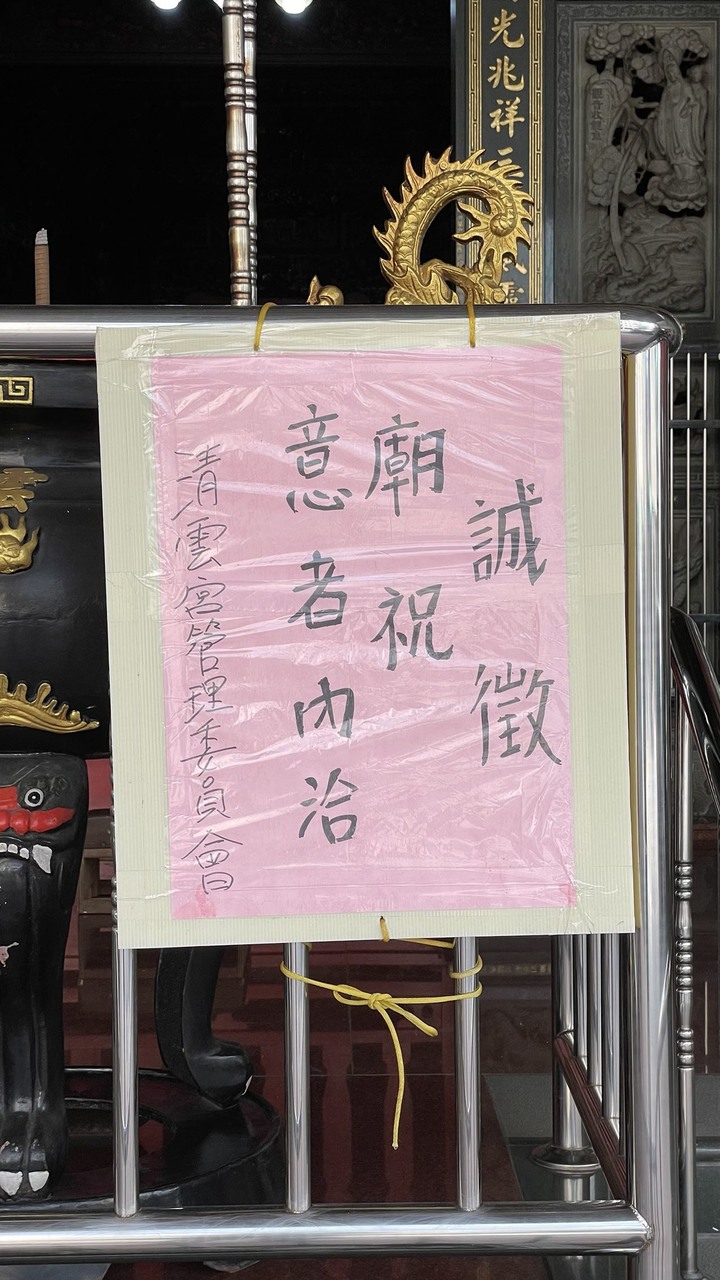 誠徵
廟祝
意者內洽
清雲宮管理委員會
光兆祥三